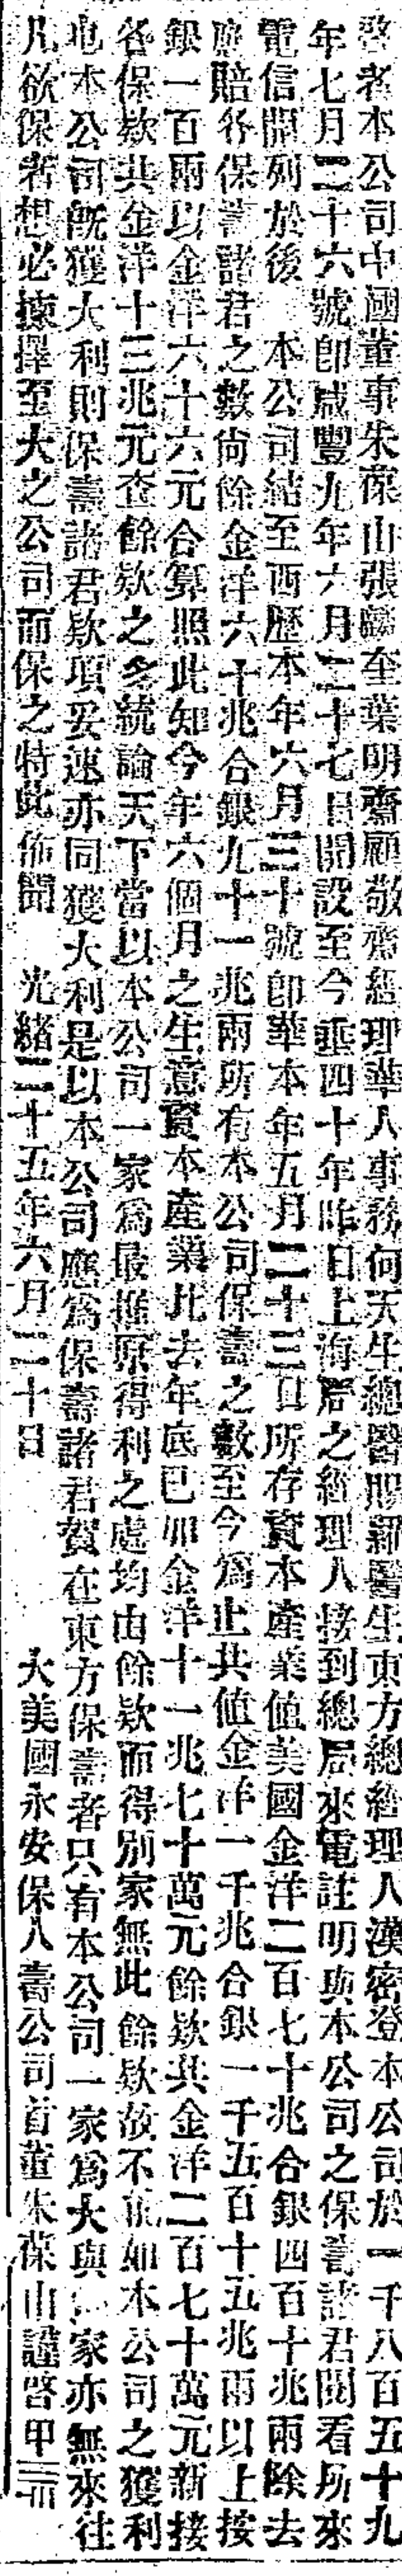 啓者本公司中國董事朱葆山張麟奎葉明齋顧敬齋經理華人事務何天生總醫賜爾醫生東方總經理人漢密登本公司於一千八百五十九
年七月二十六號卽咸豐九年六月二十七日開設至今垂四十年昨日上海局之經理人接到總局來電註明與本公司之保壽諸君閱看所來
電信開列於後　本公司結至西歷本年六月三十號卽華本年五月二十三日所存資本產業值美國金洋二百七十兆合銀四百十兆兩除去
應賠各保壽諸君之數尙餘金洋六十兆合銀九十一兆兩所有本公司保壽之數至今爲止共值金洋一千兆合銀一千五百十五兆兩以上按
銀一百兩以金洋六十六元合算照此知今年六個月之生意資本產業比去年底已加金洋十一兆七十萬元餘欵共金洋二百七十萬元新接
各保欵共金洋十三兆元查餘欵之多統論天下當以本公司一家爲最推原得利之處均由餘欵而得別家無此餘欵故不能如本公司之獲利
也本公司旣獲大利則保壽諸君欵項妥速亦同獲大利是以本公司應爲保壽諸君賀在東方保壽者只有本公司一家爲大與家亦無來往
凡欲保者想必揀擇至大之公司而保之特此佈聞　光緒二十五年六月二十日　　　大美國永安保人壽公司首董朱葆山謹啓甲